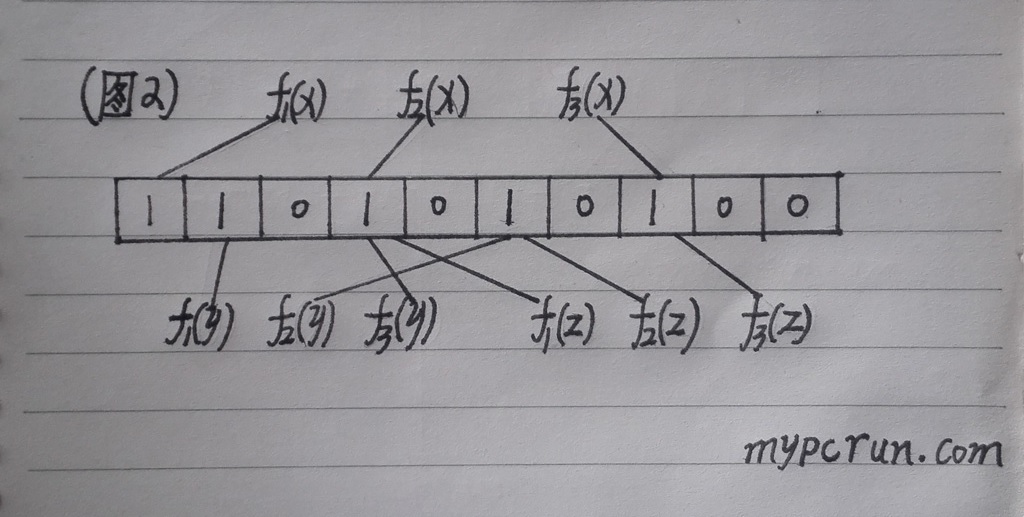 (图2) f1(x) f2(x) f3(x)
1 1 0 1 0 1 0 1 0 0
f1(y) f2(y) f3(y) f1(z) f2(z) f3(z)
mypcrun.com